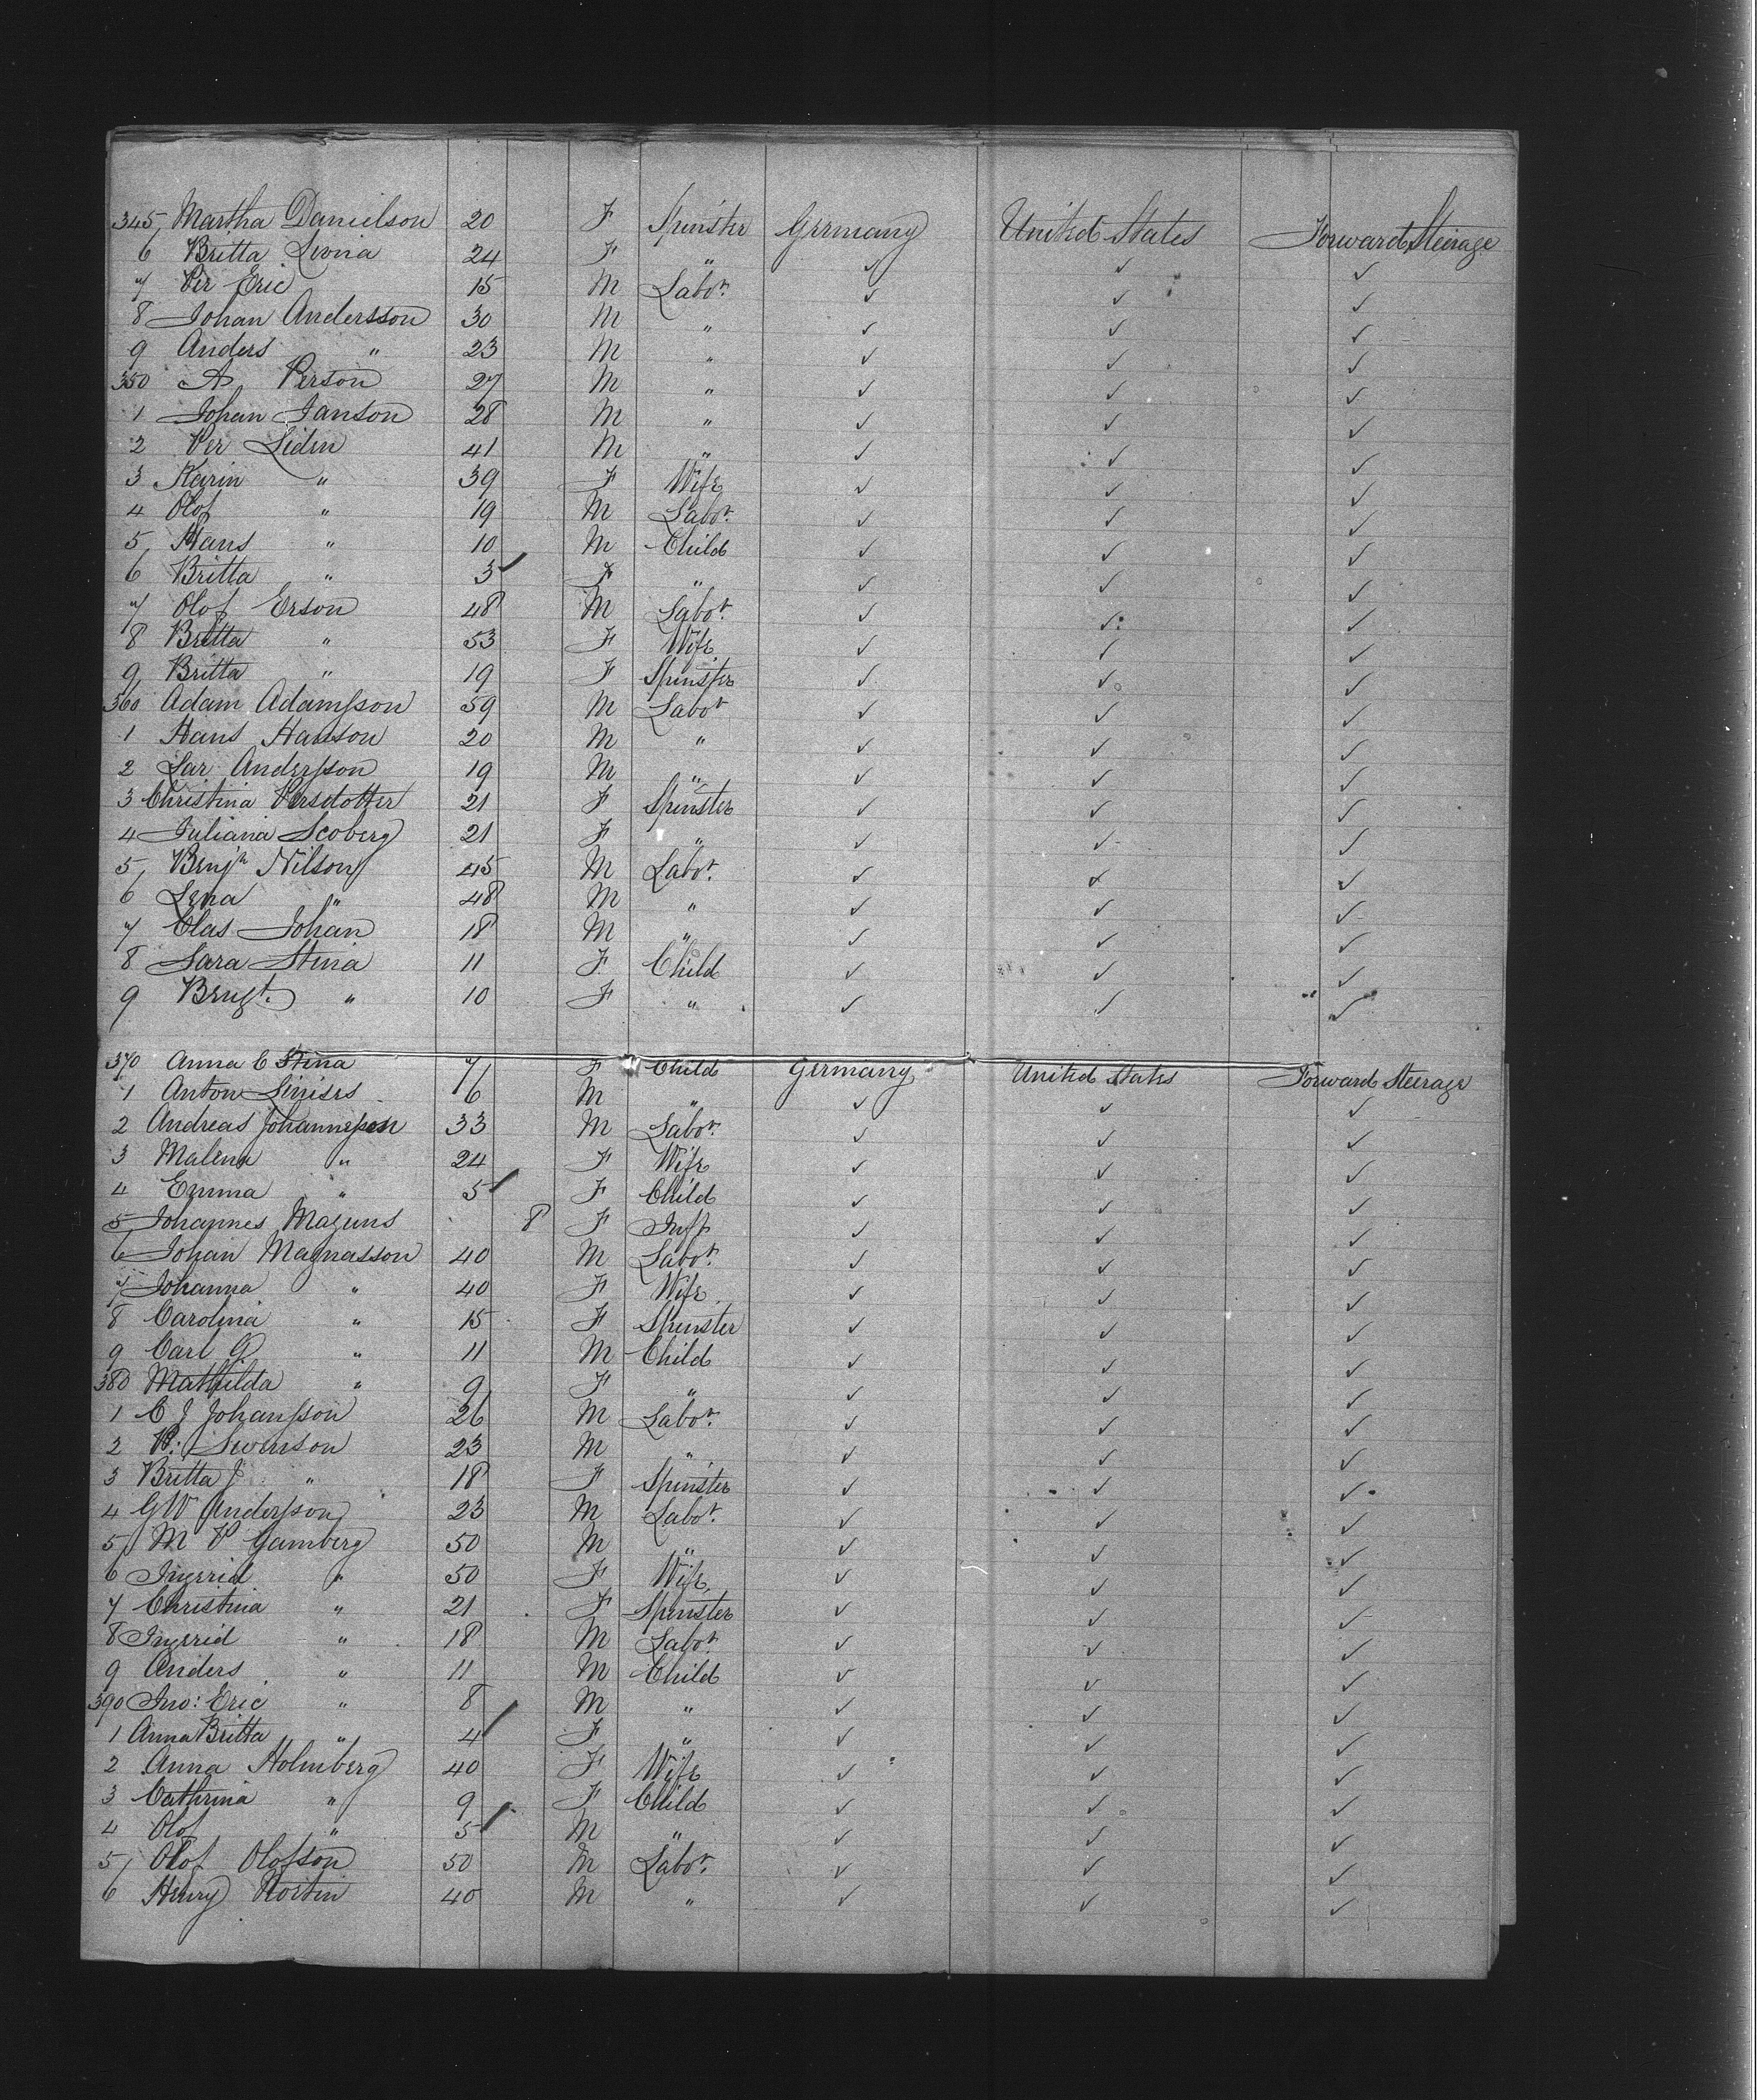 345 Martha Danielson 20 F Spinster Germany United States Forward Steerage
6 Britta Lovia 24 F " ✓ ✓ ✓
7 Per Eric 15 M Labor. ✓ ✓ ✓
8 Johan Andersson 30 M " ✓ ✓ ✓
9 Anders " 23 M " ✓ ✓ ✓
350 A Person 27 M " ✓ ✓ ✓
1 Johan Janson 28 M " ✓ ✓ ✓
2 Per Lidin 41 M " ✓ ✓ ✓
3 Karin " 39 F Wife ✓ ✓ ✓
4 Olof " 19 M Labor. ✓ ✓ ✓
5 Hans " 10 M Child ✓ ✓ ✓
6 Britta " 3 F " ✓ ✓ ✓
7 Olof Erson 48 M Labor. ✓ ✓ ✓
8 Britta " 53 F Wife ✓ ✓ ✓
9 Britta " 19 F Spinster ✓ ✓ ✓
360 Adam Adamsson 59 M Labor ✓ ✓ ✓
1 Hans Hanson 20 M " ✓ ✓ ✓
2 Lar Andersson 19 M " ✓ ✓ ✓
3 Christina Persdotter 21 F Spinster ✓ ✓ ✓
4 Juliana Scoberg 21 F " ✓ ✓ ✓
5 Benjn Nilson 45 M Labor. ✓ ✓ ✓
6 Lena " 48 M " ✓ ✓ ✓
7 Clas Johan 18 M " ✓ ✓ ✓
8 Sara Stina 11 F Child ✓ ✓ ✓
9 Bengt. " 10 F " ✓ ✓ ✓
370 Anna C Stina 7 F Child Germany United States Forward Steerage
1 Anton 6 M " ✓ ✓ ✓
2 Andreas Johannesson 33 M Labor. ✓ ✓ ✓
3 Malena " 24 F Wife ✓ ✓ ✓
4 Emma " 5 F Child ✓ ✓ ✓
5 Johannes Magnus 8 F Inft ✓ ✓ ✓
6 Johan Magnasson 40 M Labor. ✓ ✓ ✓
7 Johanna " 40 F Wife ✓ ✓ ✓
8 Carolina " 15 F Spinster ✓ ✓ ✓
9 Carl G " 11 M Child ✓ ✓ ✓
380 Mathilda " 9 F " ✓ ✓ ✓
1 C J Johansson 26 M Labor. ✓ ✓ ✓
2 P: Swenson 23 M " ✓ ✓ ✓
3 Britta J " 18 F Spinster ✓ ✓ ✓
4 G W Andersson 23 M Labor. ✓ ✓ ✓
5 M P Gamberg 50 M " ✓ ✓ ✓
6 Ingerid " 50 F Wife ✓ ✓ ✓
7 Christina " 21 F Spinster ✓ ✓ ✓
8 Ingerid " 18 M Labor. ✓ ✓ ✓
9 Anders " 11 M Child ✓ ✓ ✓
390 Jno: Eric " 8 M " ✓ ✓ ✓
1 Anna Britta " 4 F " ✓ ✓ ✓
2 Anna Holmberg 40 F Wife ✓ ✓ ✓
3 Cathrina " 9 F Child ✓ ✓ ✓
4 Olof " 5 M " ✓ ✓ ✓
5 Olof Olofson 50 M Labor. ✓ ✓ ✓
6 Henry Nortin 40 M " ✓ ✓ ✓